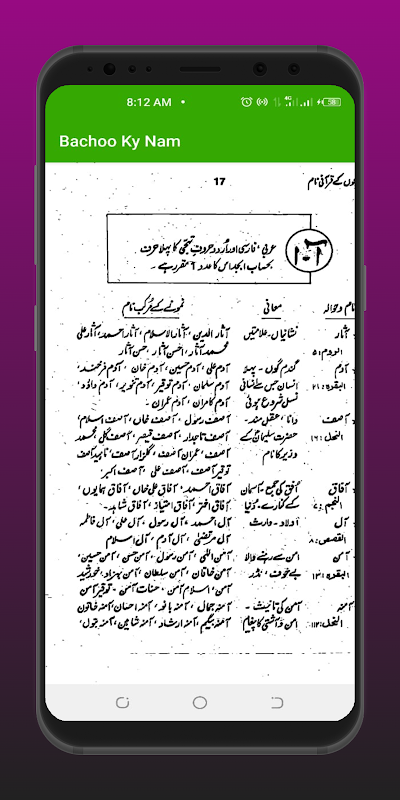 8:12 AM
4G
58
Bachoo Ky Nam
17 وں کے قرآنی نام
آ-ا
عربی، فارسی اور اُردو حروفِ تہجی کا پہلا حرف
بحساب ابجد اس کا عدد ۱ مقرر ہے۔
نام و حوالہ معانی نمونے کے مُرکب نام
آثار نشانیاں۔ علامتیں آثار الدین، آثار الاسلام، آثار احمد، آثار علی
الروم: ۵ محمد آثار، احسن آثار، حسن آثار
آدم گندم گوں۔ پہلا آدم علی، آدم حسین، آدم خان، آدم فرخند،
البقرہ: ۲۱ انسان جس سے نسلِ آدم سلمان، آدم توقیر، آدم تنویر، آدم داؤد،
نسل شروع ہوئی آدم کامران، آدم عمران۔
آصف دانا، عقل مند۔ آصف رسول، آصف خاں، آصف اسلام،
النحل: ۱۶ حضرت سلیمان کے آصف تاجدار، آصف قیصر، آصف گل، محمد
وزیر کا نام آصف، عمران آصف، گلزار آصف، ناہید آصف
توقیر آصف، آصف علی، آصف اکبر
آفاق اُفق کی جمع۔ آسمان آفاق احمد، آفاق علی خاں، آفاق ہمایوں،
النجم: ۷ کے کنارے۔ دُنیا آفاق اختر، آفاق امتیاز، آفاق شاہد۔
آل اولاد۔ وارث آل احمد، آل رسول، آل علی، آل فاطمہ
القصص: ۸ آل مرتضیٰ، آل آدم، آل اسلام
آمن امن سے رہنے والا آمن اللہی، آمن رسول، آمن حسن، آمن حسین،
البقرہ: ۱۳ بے خوف، نڈر آمن خاقان، آمن سلطان، آمن بہزاد، خورشید
آمن، اسلام آمن، حنات آمن۔ توقیر آمن
آمنہ آمن کی تانیث۔ آمنہ جمال، آمنہ بانو، آمنہ احسان، آمنہ خاتون
النحل: ۱۱۲ امن و آشتی کا پیغام آمنہ بیگم، آمنہ ارشاد، آمنہ شاہین، آمنہ بتول،